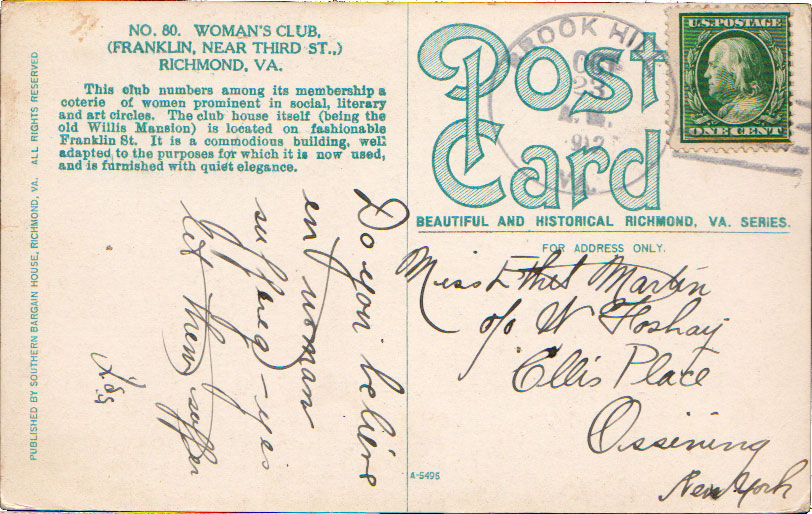 NO. 80. WOMAN'S CLUB,
(FRANKLIN, NEAR THIRD ST.,)
RICHMOND, VA.
This club numbers among its membership a
coterie of women prominent in social, literary
and art circles. The club house itself (being the
old Willis Mansion) is located on fashionable
Franklin St. It is a commodious building, well
adapted to the purposes for which it is now used,
and is furnished with quiet elegance.
PUBLISHED BY SOUTHERN BARGAIN HOUSE, RICHMOND, VA. ALL RIGHTS RESERVED
Do you believe
in woman
suffreg - yes
let them suffer
Post
Card
BROOK HILL
OCT
23
A.M.
1912
VA.
U.S. POSTAGE
ONE CENT
BEAUTIFUL AND HISTORICAL RICHMOND, VA. SERIES.
FOR ADDRESS ONLY.
Miss Ethel Martin
c/o W Foshay
Ellis Place
Ossining
New York
A-5495